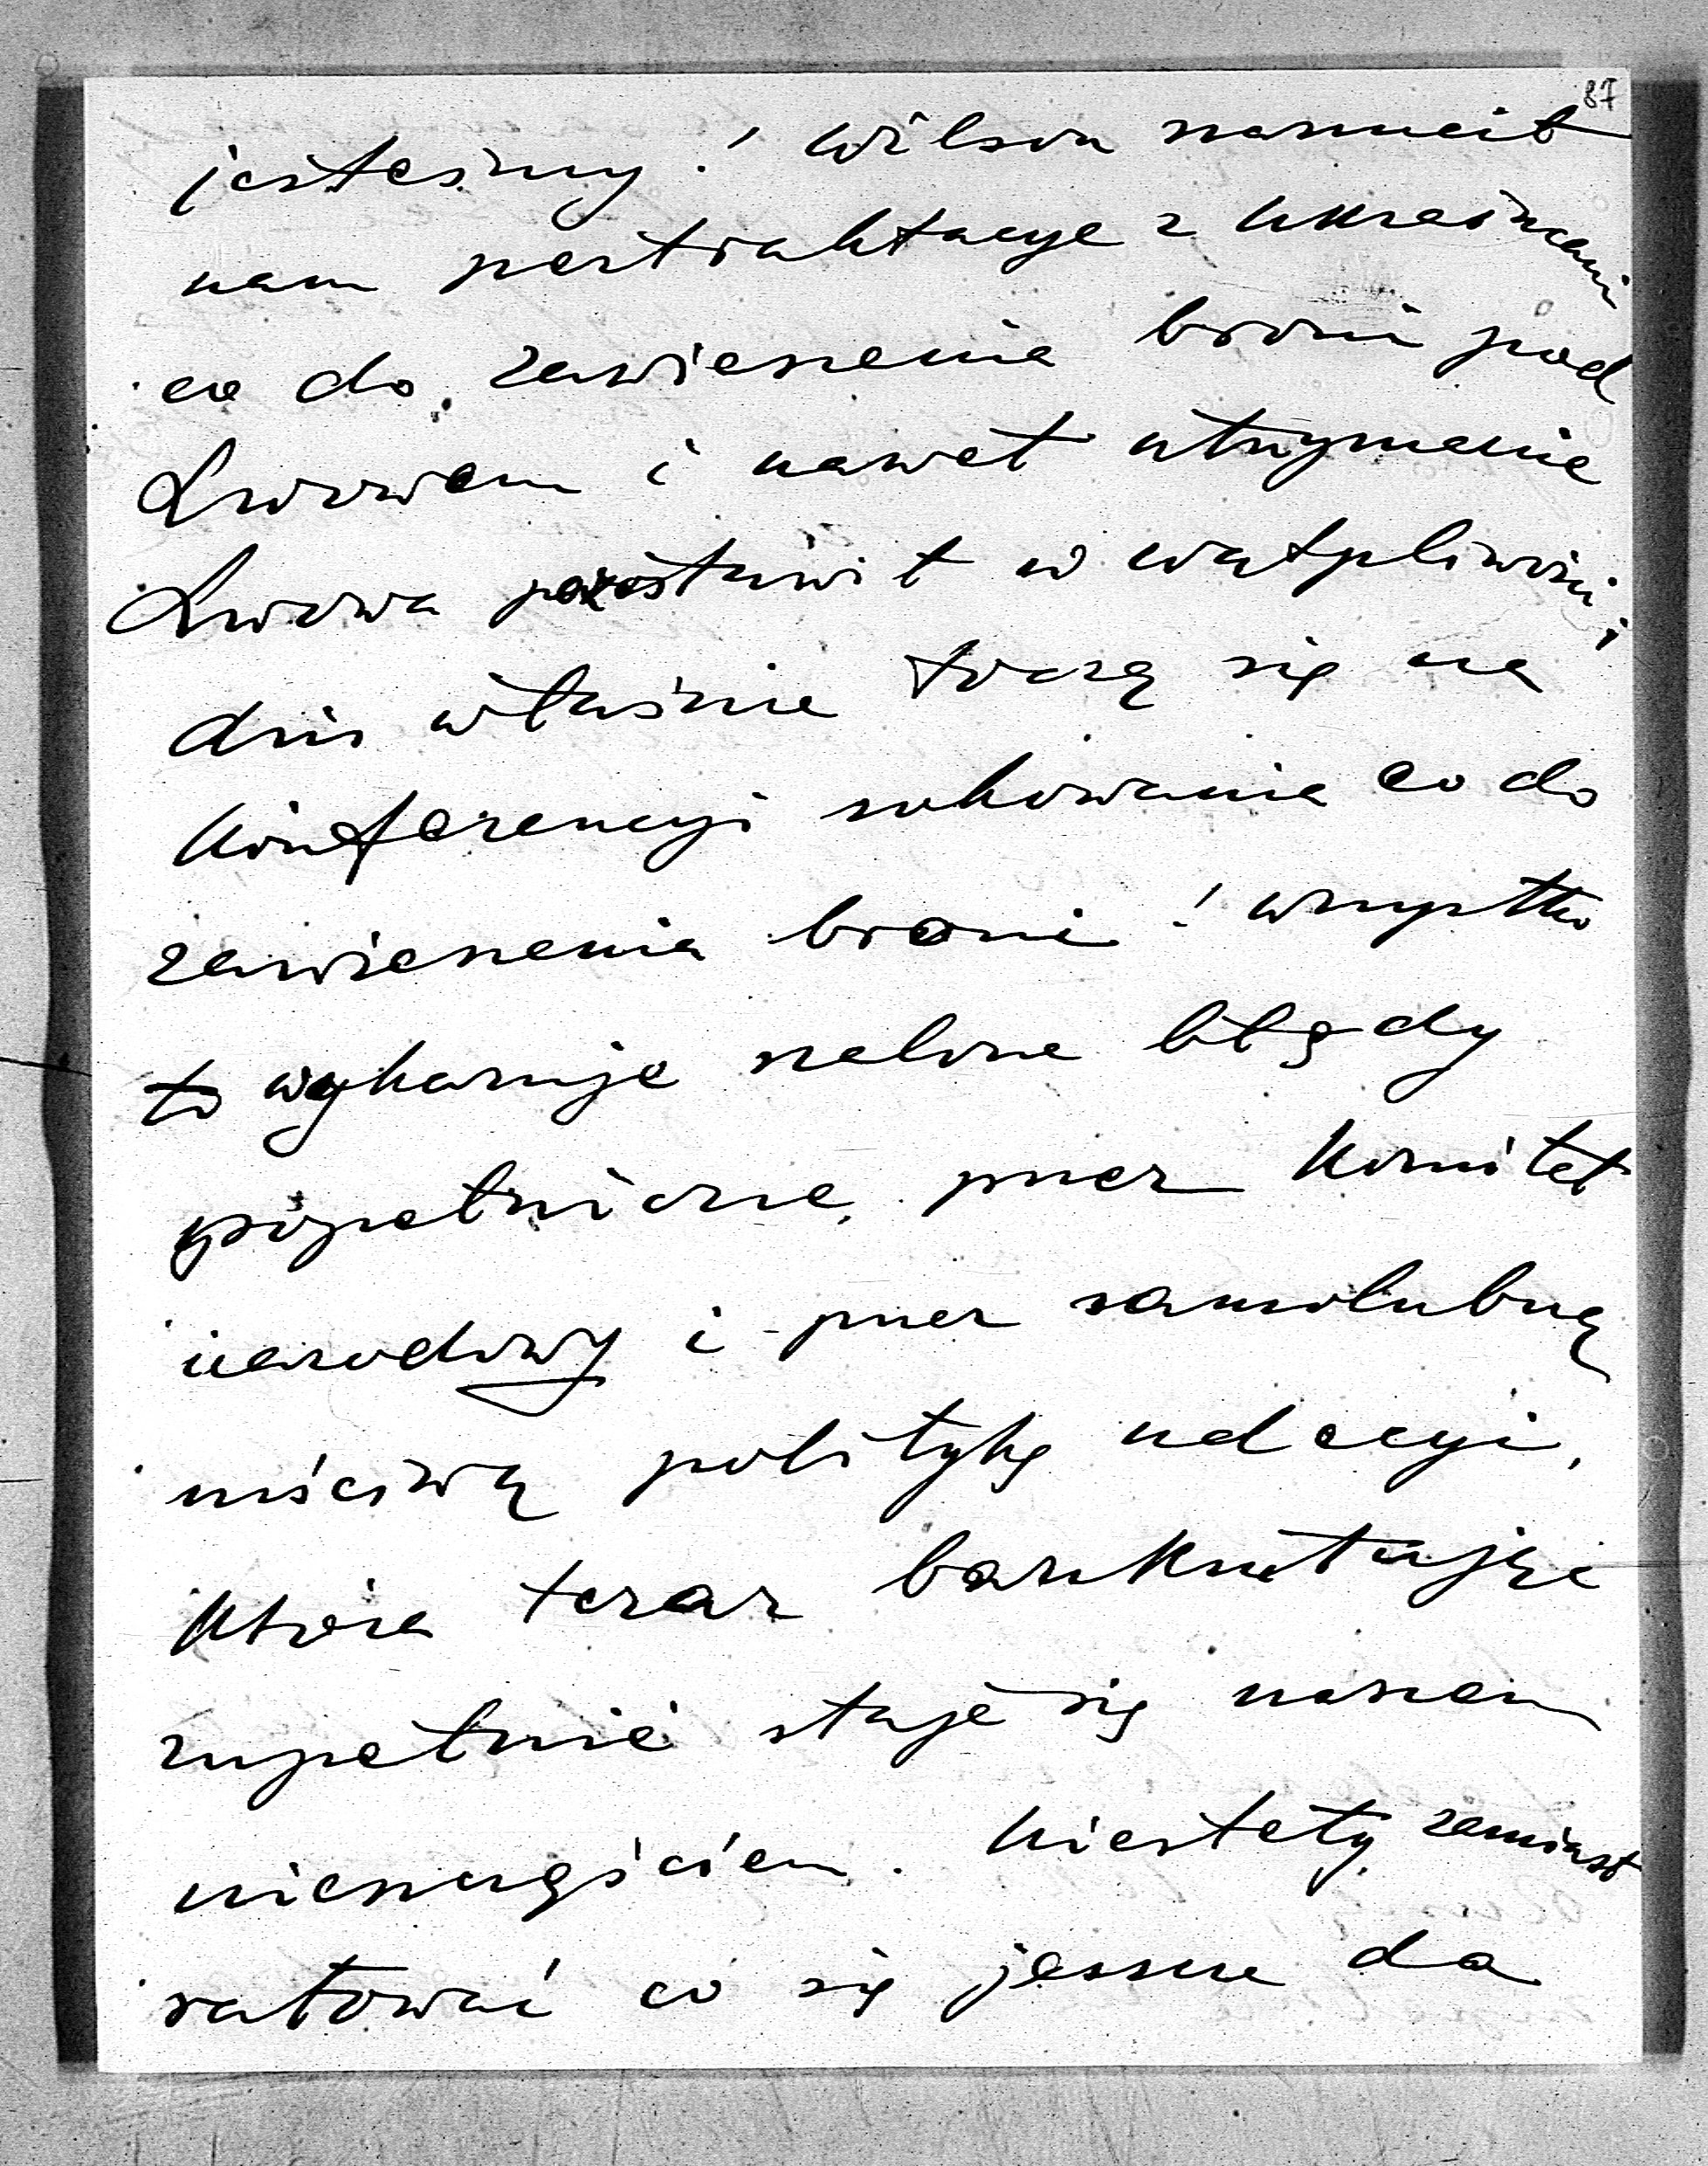 87
jesteśmy! Wilson narzucił
nam pertraktacye z Ukraińcami
co do zawieszenia broni pod
Lwowem i nawet utrzymanie
Lwowa postawił w wątpliwości;
dziś właśnie toczą się na
Konferencyi rokowania co do
zawieszenia broni! wszystko
to wykazuje szalone błędy
popełnione przez Komitet
narodowy i przez samolubną
mściwą politykę endecyi,
która teraz bankrutując
zupełnie staje się naszem
nieszczęściem. Niestety zamiast
ratować co się jeszcze da